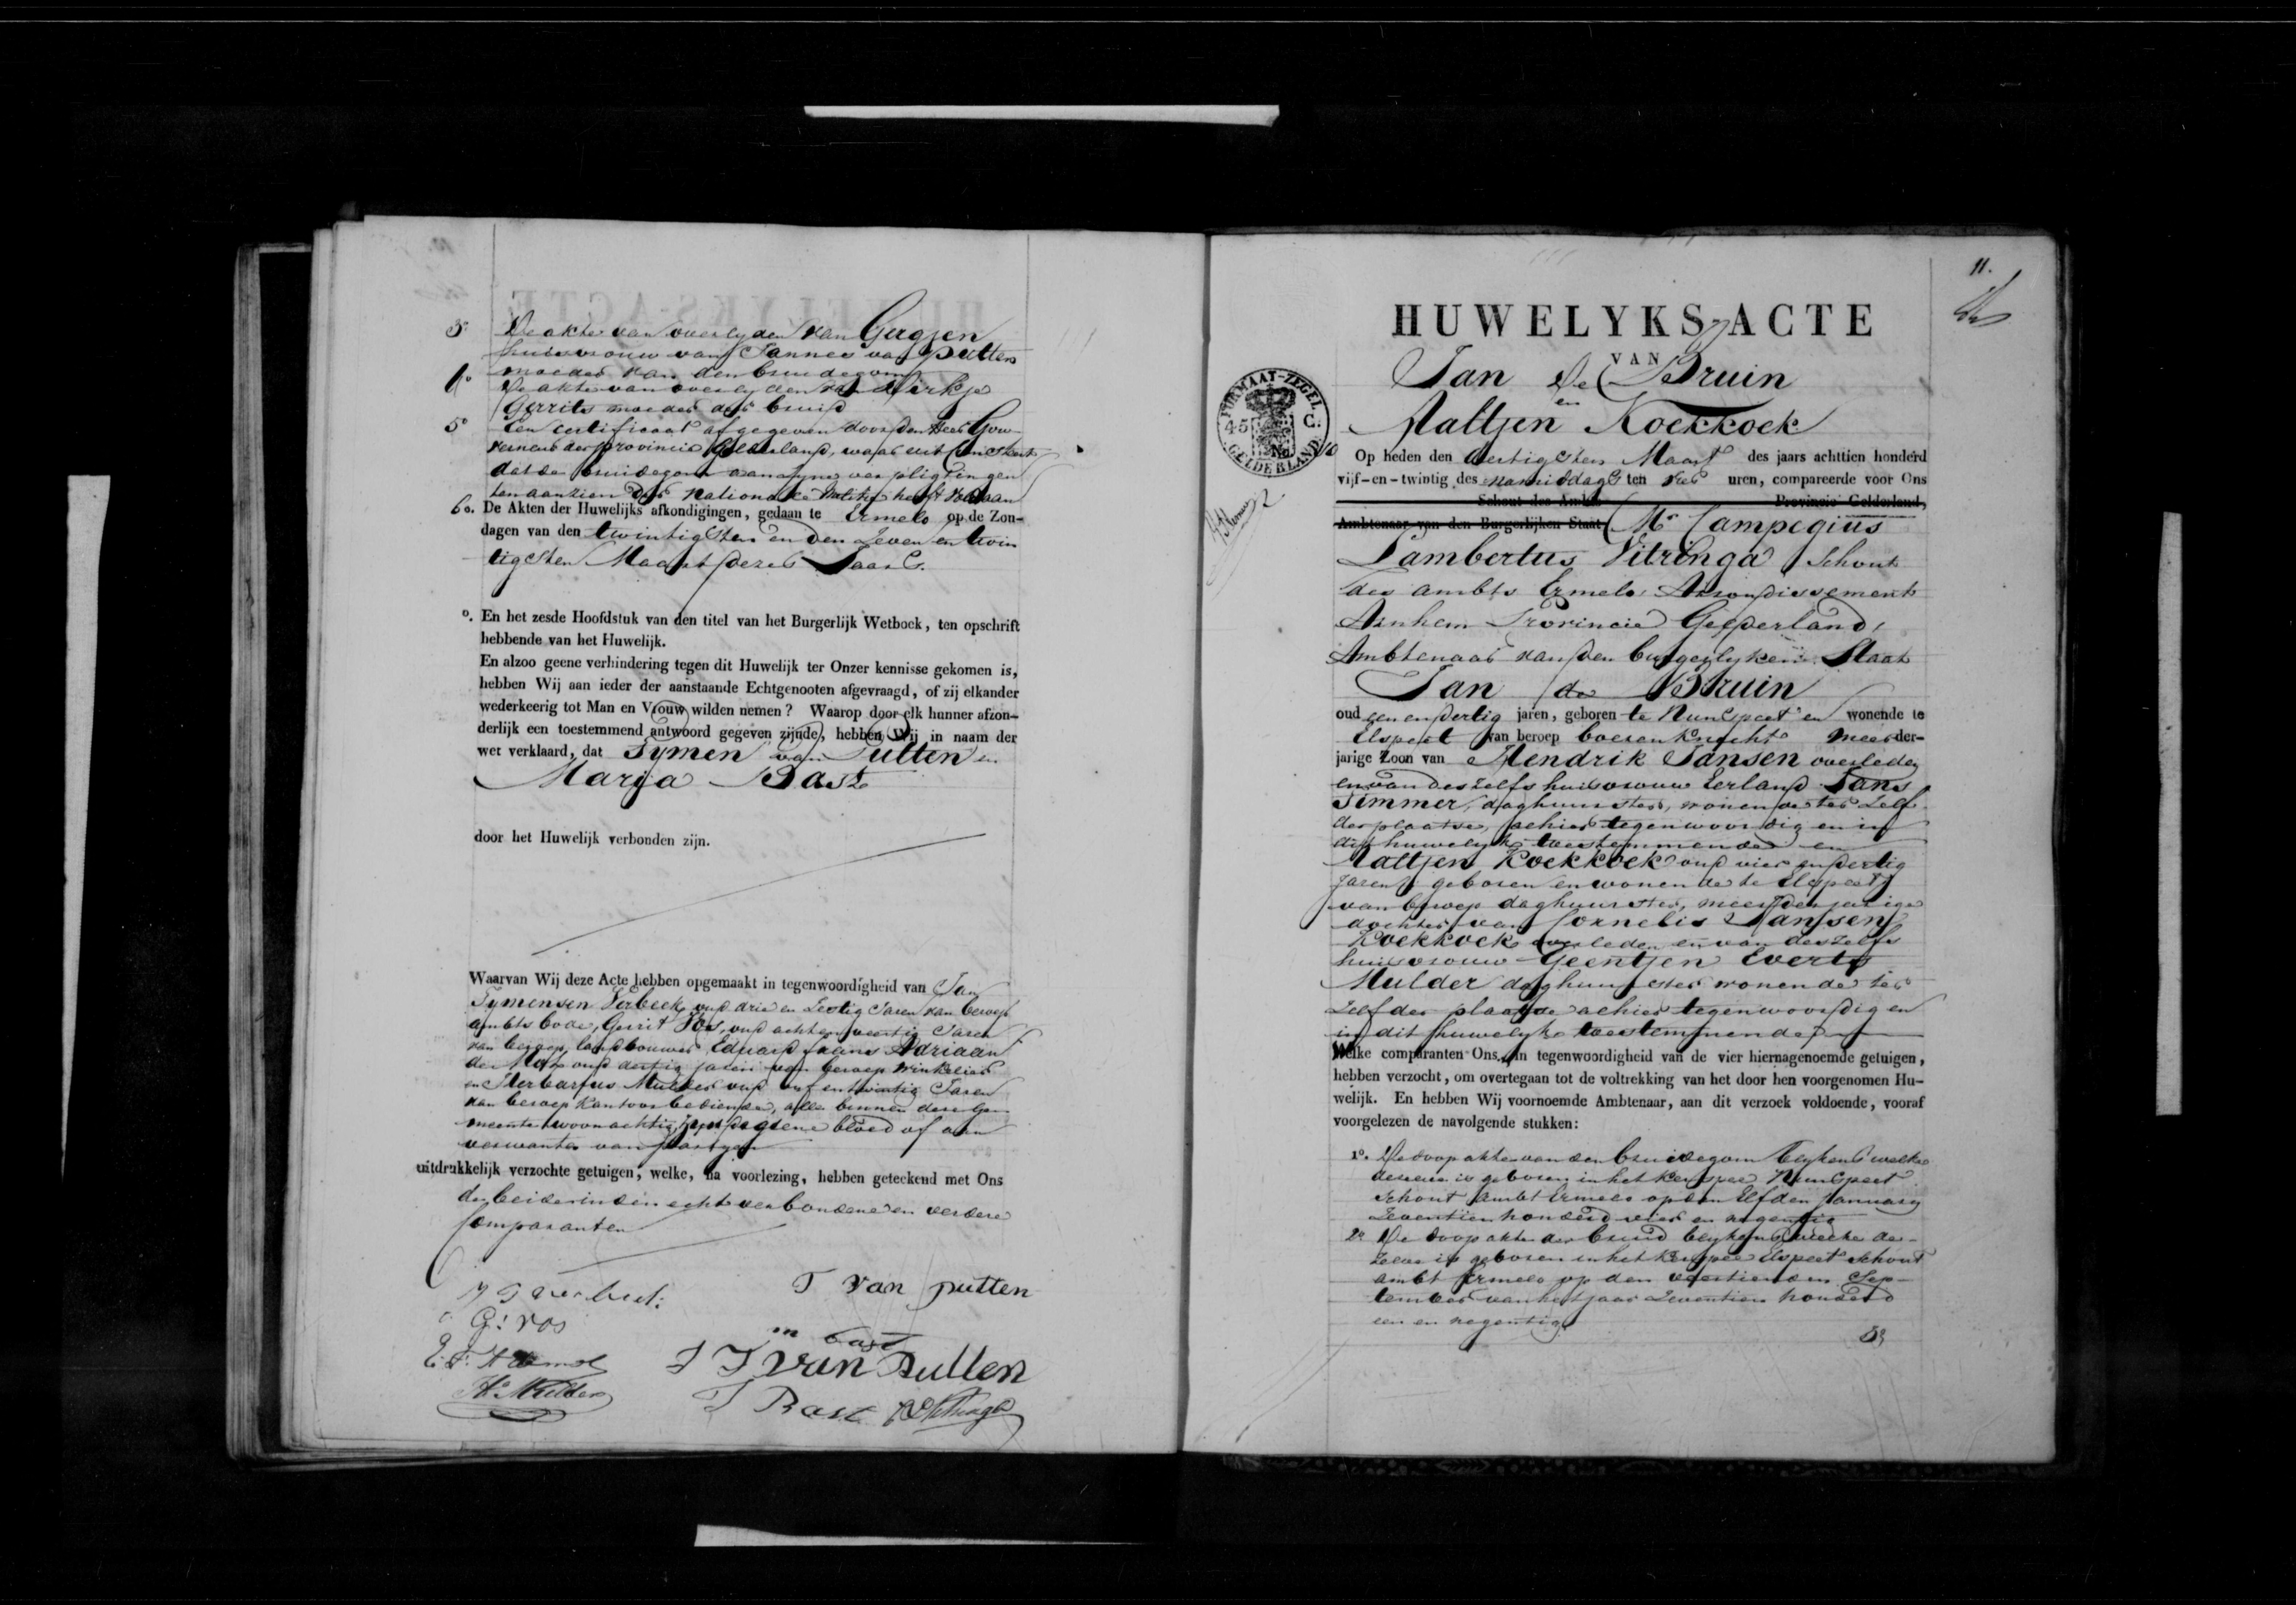 3º De akte van overlyden van Gergjen
huisvrouw van Jannes van Putten
moeder van den bruidegom
4º De akte van overlyden van Dirkje
Gerrits moeder der bruid
5º Een certificaat afgegeven door den Heer Gou-
verneur der provincie Gelderland, waar uit
dat de bruidegom aan zyne verpligtingen
ten aanzien der Nationale Militie heeft voldaan
6o. De Akten der Huwelijks afkondigingen, gedaan te Ermelo op de Zon-
dagen van den twintigsten en den Zeven en twin
tigsten Maart dezes Jaars.
º. En het zesde Hoofdstuk van den titel van het Burgerlijk Wetboek, ten opschrift
hebbende van het Huwelijk.
En alzoo geene verhindering tegen dit Huwelijk ter Onzer kennisse gekomen is,
hebben Wij aan ieder der aanstaande Echtgenooten afgevraagd, of zij elkander
wederkeerig tot Man en Vrouw wilden nemen? Waarop door elk hunner afzon-
derlijk een toestemmend antwoord gegeven zijnde, hebben Wij in naam der
wet verklaard, dat Tymen van Putten en
Marya Bast
door het Huwelijk verbonden zijn.
Waarvan Wij deze Acte hebben opgemaakt in tegenwoordigheid van Jan
Tymensen Verbeek, oud drie en Zestig Jaren van beroep
ambts bode, Gerrit Vos, oud acht en veertig Jaren
van beroep landbouwer, Eduard Frans Adriaan
de Mol oud dertig jaren van beroep Winkelier
en Mulder oud en twintig Jaren
van beroep Kantoor bediende, alle binnen deze Ge-
meente woonachtig, geene bloed of aan
verwanten van partyen
uitdrukkelijk verzochte getuigen, welke, na voorlezing, hebben geteekend met Ons
de beide in den echt verbondene en verdere
Comparanten
T van putten
G: Vos
m bast
E: F: A de mol
J J van Putten
Hs Mulder
J Bast
11.
HUWELYKS-ACTE
VAN
Jan De Bruin
en
Aaltjen Koekkoek
FORMAAT-ZEGEL
45 C.
GELDERLAND
Op heden den dertigsten Maart des jaars achttien honderd
vijf-en-twintig des namiddags ten vier uren, compareerde voor Ons
Schout des Ambts Provincie Gelderland,
Ambtenaar van den Burgerlijken Staat Mr Campegius
Lambertus Vitringa Schout
des ambts Ermelo Arrondissement
Arnhem Provincie Gelderland,
Ambtenaar van den burgerlyken Staat
Jan de Bruin
oud een en dertig jaren, geboren te Nunspeet en wonende te
Elspeet van beroep boerenknecht meerder-
jarige Zoon van Hendrik Jansen overleden
en van deszelfs huisvrouw Eerland Jans
Timmer, daghuurster, wonende ter Zelf-
der plaatse, alhier tegenwoordig en in
dit huwelyk toestemmende en
Aaltjen Koekkoek oud vier en dertig
Jaren, geboren en wonende te Elspeet
van beroep daghuurster, meerderjarige
dochter van Cornelis Janssen
Koekkoek overleden en van deszelfs
huisvrouw Geentjen Everts
Mulder daghuurster wonende ter
Zelfder plaatse alhier tegenwoordig en
in dit huwelyk toestemmende
Welke comparanten Ons, in tegenwoordigheid van de vier hiernagenoemde getuigen,
hebben verzocht, om overtegaan tot de voltrekking van het door hen voorgenomen Hu-
welijk. En hebben Wij voornoemde Ambtenaar, aan dit verzoek voldoende, vooraf
voorgelezen de navolgende stukken:
1º. De doop akte van den bruidegom blykens welke
dezelve is geboren in het Kerspel Nunspeet
Schout Ambt Ermelo op den Elfden January
Zeventien honderd vier en negentig
2º De doop akte der bruid blykens welke de-
zelve is geboren in het Kerspel Elspeet Schout
ambt Ermelo op den veertienden Sep-
tember van het jaar Zeventien honderd
een en negentig